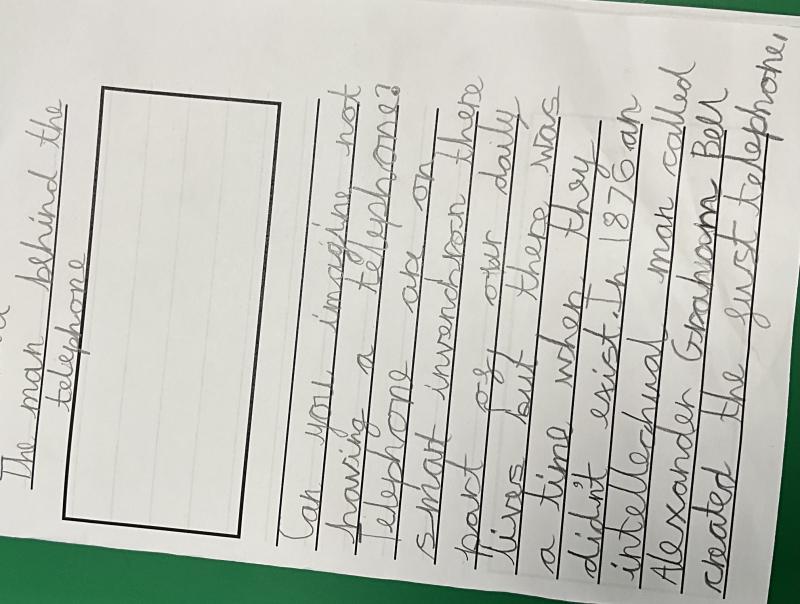 The man behind the
telephone
Can you imagine not
having a telephone?
Telephone are on
smart invenchron there
part of our daily
lives but there was
a time when they
didn't exist. In 1876 an
intellechual man called
Alexander Graham Bell
created the furst telephone,